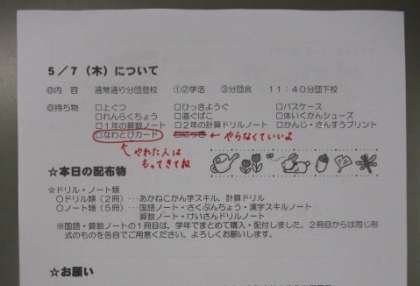 5/7(木)について
◎内 容 通常通り分団登校 ①②学活 ③分団会 11:40分団下校
◎持ち物 □上ぐつ □ひっきようぐ □バスケース
□れんらくちょう □道ぐばこ □体いくかんシューズ
□1年の算数ノート □2年の計算ドリルノート □かんじ・さんすうプリント
□なわとびカード □にっき ← やらなくていいよ
やれた人は
もってきてね
☆本日の配布物
☆ドリル・ノート類
○ドリル(2冊)…あかねこかん字スキル、計算ドリル
○ノート類(5冊)…国語ノート・さくぶんちょう・漢字スキルノート
算数ノート・けいさんドリルノート
※国語・算数ノートの1冊目は、学年でまとめて購入・配付しました。2冊目からは同じ形
式のものを各自でご用意ください。よろしくお願いします。
☆お願い